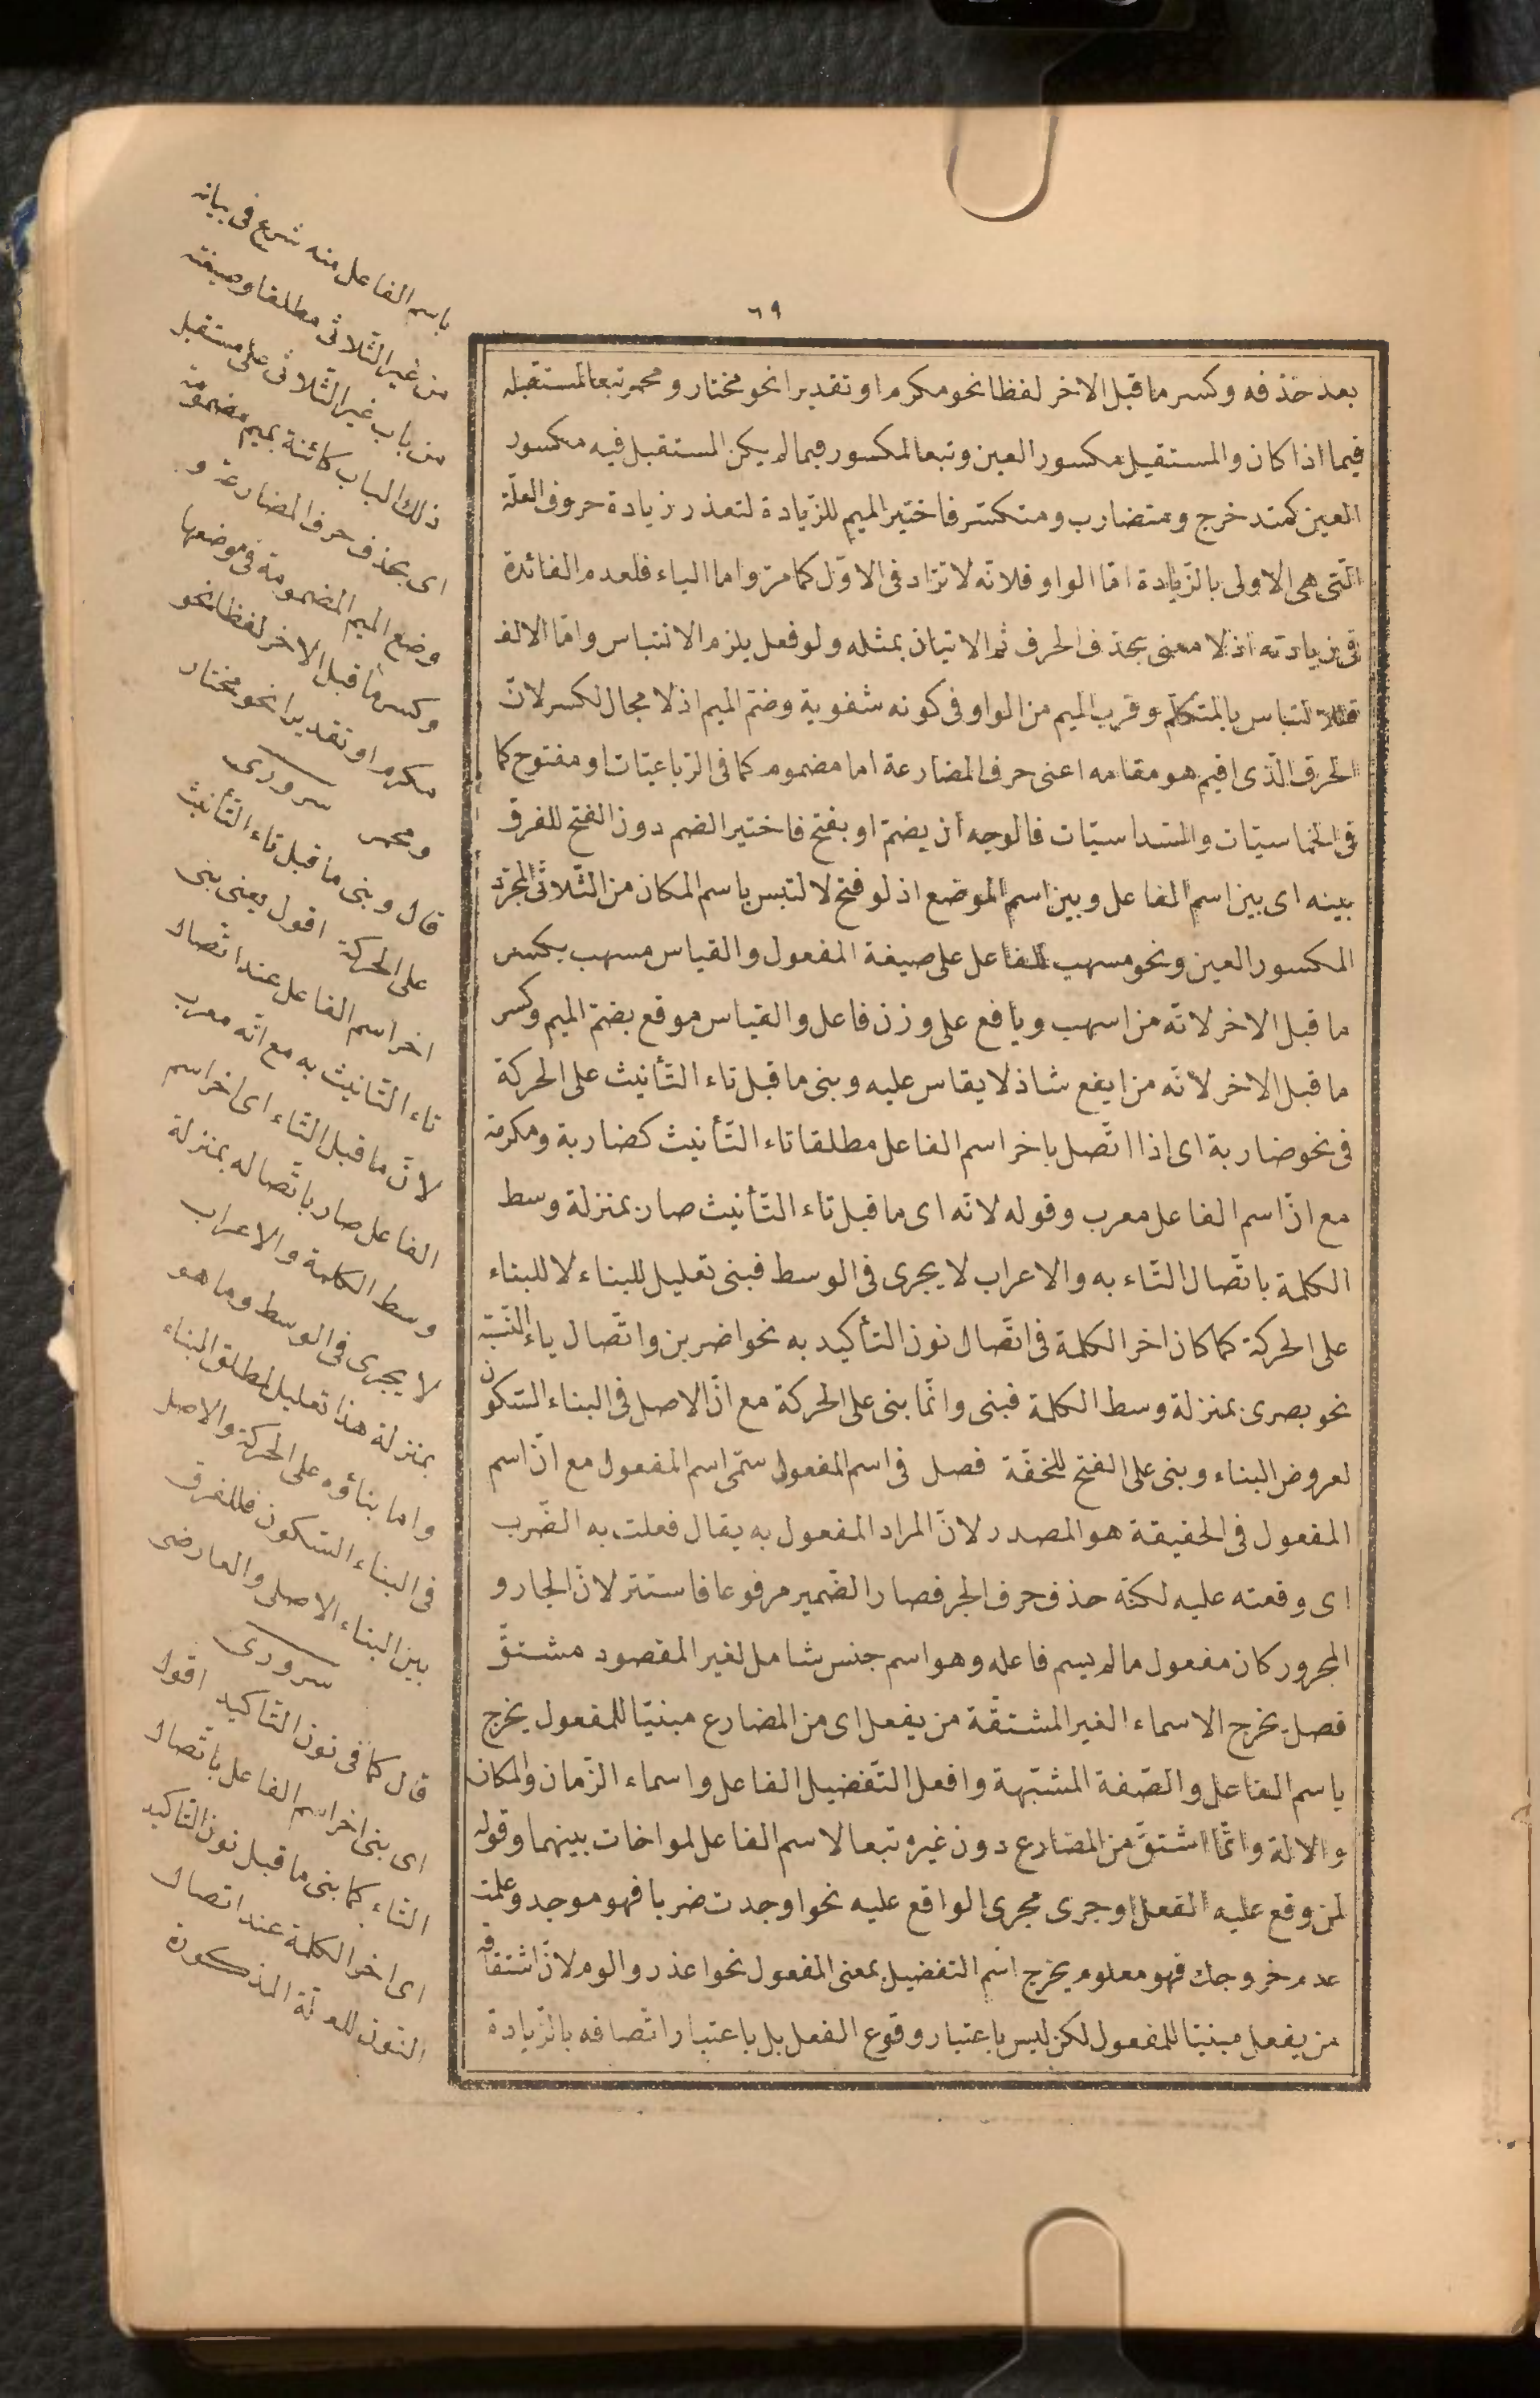 ٦٩
بعد حذفه وكسر ما قبل الاخر لفظا نحو مكرم او تقديرا نحو مختار ومحمر تبعا لمستقبله
فيما اذا كان والمستقبل مكسور العين وتبعا لمكسور فيما لم يكن المستقبل فيه مكسور
العين كمتدخرج ومتضارب ومتكسّر فاختير الميم للزّيادة لتعذر زيادة حروف العلّة
الّتى هى الاولى بالزّيادة امّا الواو فلانّه لا تزاد فى الاوّل كما مرّ واما الياء فلعدم الفائدة
فى زيادته اذ لا معنى بحذف الحرف ثم الاتيان بمثله ولو فعل يلزم الانتباس وامّا الالف
فللالتباس بالمتكلّم وقرب الميم من الواو فى كونه شفوية وضمّ الميم اذ لا مجال لكسر لانّ
الحرف الّذى اقيم هو مقامه اعنى حرف المضارعة اما مضموم كما فى الرّباعيّات او مفتوح كما
فى الخماسيّات والسّداسيّات فالوجه ان يضمّ او بفتح فاختير الضم دون الفتح للفرق
بينه اى بين اسم الفاعل وبين اسم الموضع اذ لو فتح لالتبس باسم المكان من الثّلاثى المجرّد
المكسور العين ونحو مسهب للفاعل على صيغة المفعول والقياس مسهب بكسر
ما قبل الاخر لانّه من اسهب ويافع على وزن فاعل والقياس موقع بضمّ الميم وكسر
ما قبل الاخر لانّه من ايفع شاذ لا يقاس عليه وبنى ما قبل تاء التّأنيث على الحركة
فى نحو ضاربة اى اذا اتّصل باخر اسم الفاعل مطلقا تاء التّأنيث كضاربة ومكرمة
مع انّ اسم الفاعل معرب وقوله لانّه اى ما قبل تاء التّأنيث صار بمنزلة وسط
الكلمة باتّصال التّاء به والاعراب لا يجرى فى الوسط فبنى تعليل للبناء لا للبناء
على الحركة كما كان اخر الكلمة فى اتّصال نون التأكيد به نحو اضربن واتّصال ياء النّسبة
نحو بصرى بمنزلة وسط الكلمة فبنى وانّما بنى على الحركة مع انّ الاصل فى البناء السّكون
لعروض البناء وبنى على الفتح للخفّة فصل فى اسم المفعول سمّى اسم المفعول مع انّ اسم
المفعول فى الحقيقة هو المصدر لانّ المراد المفعول به يقال فعلت به الضّرب
اى وقعته عليه لكنّه حذف حرف الجر فصار الضّمير مرفوعا فاستتر لانّ الجار و
المجرور كان مفعول ما لم يسم فاعله وهو اسم جنس شامل لغير المقصود مشتقّ
فصل يخرج الاسماء الغير المشتقّة من يفعل اى من المضارع مبنيّا للمفعول يخرج
باسم الفاعل والصّفة المشبّهة وافعل التّفضيل الفاعل واسماء الزّمان والمكان
والالة وانّما اشتقّ من المضارع دون غيره تبعا لاسم الفاعل لمواخات بينهما وقوله
لمن وقع عليه الفعل او جرى مجرى الواقع عليه نحو اوجدت ضربا فهو موجد وعلمت
عدم خروجك فهو معلوم يخرج اسم التفضيل بمعنى المفعول نحو اعذر والوم لانّ اشتقاقه
من يفعل مبنيّا للمفعول لكن ليس باعتبار وقوع الفعل بل باعتبار اتّصافه بالزّيادة
باسم الفاعل منه شرع فى بيانه
من غير الثّلاثى مطلقا وصيغته
من باب غير الثّلاثى على مستقبل
ذلك الباب كائنة بميم مضمومة
اى بحذف حرف المضارعة و
وضع الميم المضمومة فى موضعها
وكسر ما قبل الاخر لفظا نحو
مكرم او تقديرا نحو مختار
ومحمر سرورى
قال وبنى ما قبل تاء التّأنيث
على الحركة اقول يعنى بنى
اخر اسم الفاعل عند اتّصال
تاء التّانيث به مع انّه معرب
لانّ ما قبل التّاء اى اخر اسم
الفاعل صار باتّصاله بمنزلة
وسط الكلمة والاعراب
لا يجرى فى الوسط وما هو
بمنزلة هذا تعليل لمطلق البناء
واما بناؤه على الحركة والاصل
فى البناء السّكون فللفرق
بين البناء الاصلى والعارضى
سرورى
قال كما فى نون التاكيد اقول
اى بنى اخر اسم الفاعل باتّصال
التّاء كما بنى ما قبل نون التّاكيد
اى اخر الكلمة عند اتصال
النّون للعلّة المذكورة